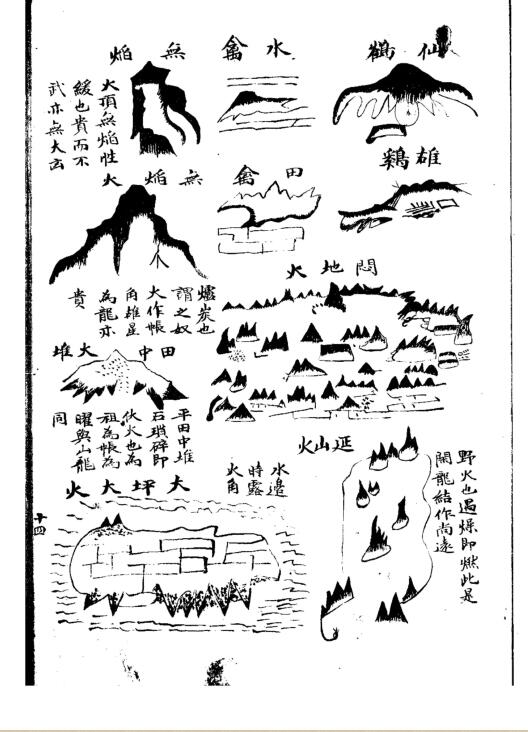 仙鶴
水禽
無焰
火頂無焰性
緩也貴而不
武亦無大玄
雄鷄
田禽
無焰火
爐炭也
謂之奴
火作帳
角雄星
為龍亦
貴
悶地火
田中大堆
平田中堆
石瑣碎即
伙火也為
祖為帳為
曜與山龍
同
延山火
野火也過燥即燃此是
開龍結作尚遠
大坪大火
水邊
時露
火角
十四